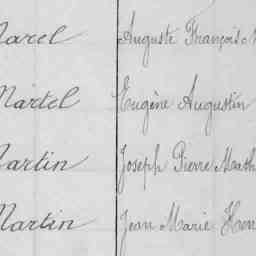 Marcel Auguste François
Martel Eugène Augustin
Martin Joseph Pierre Math
Martin Jean Marie Hen